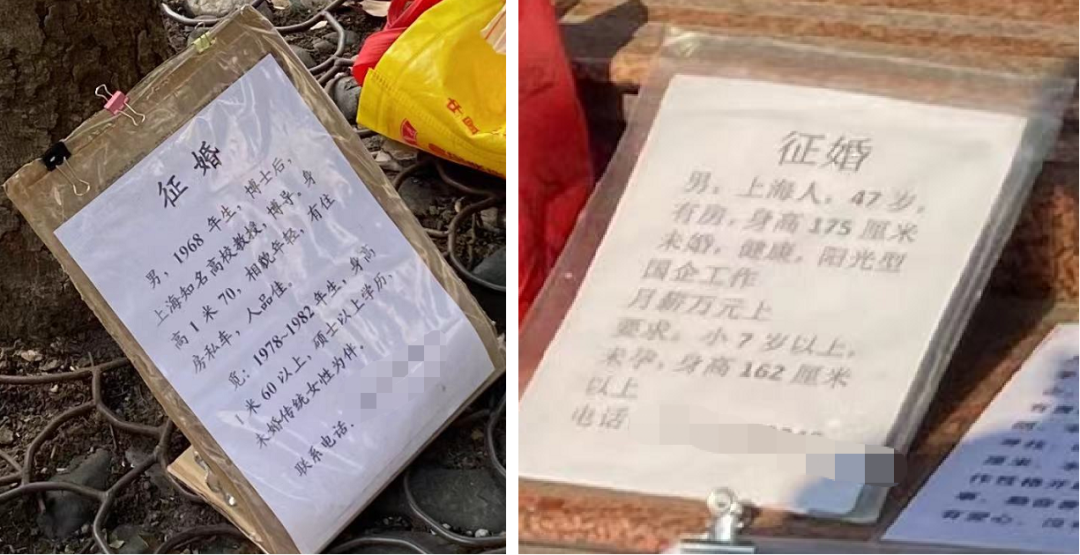 征婚
男，1968年生，博士后，
上海知名高校教授，博导。身
高1米70，相貌年轻，有住
房私车，人品佳。
宽：1978~1982年生，身高
1米60以上，硕士以上学历，
未婚传统女性为伴。
联系电话：
征婚
男，上海人，47岁，
有房，身高175厘米
未婚，健康，阳光型
国企工作
月薪万元上
要求：小7岁以上，
未孕，身高162厘米
以上
电话
厘米
作性格开